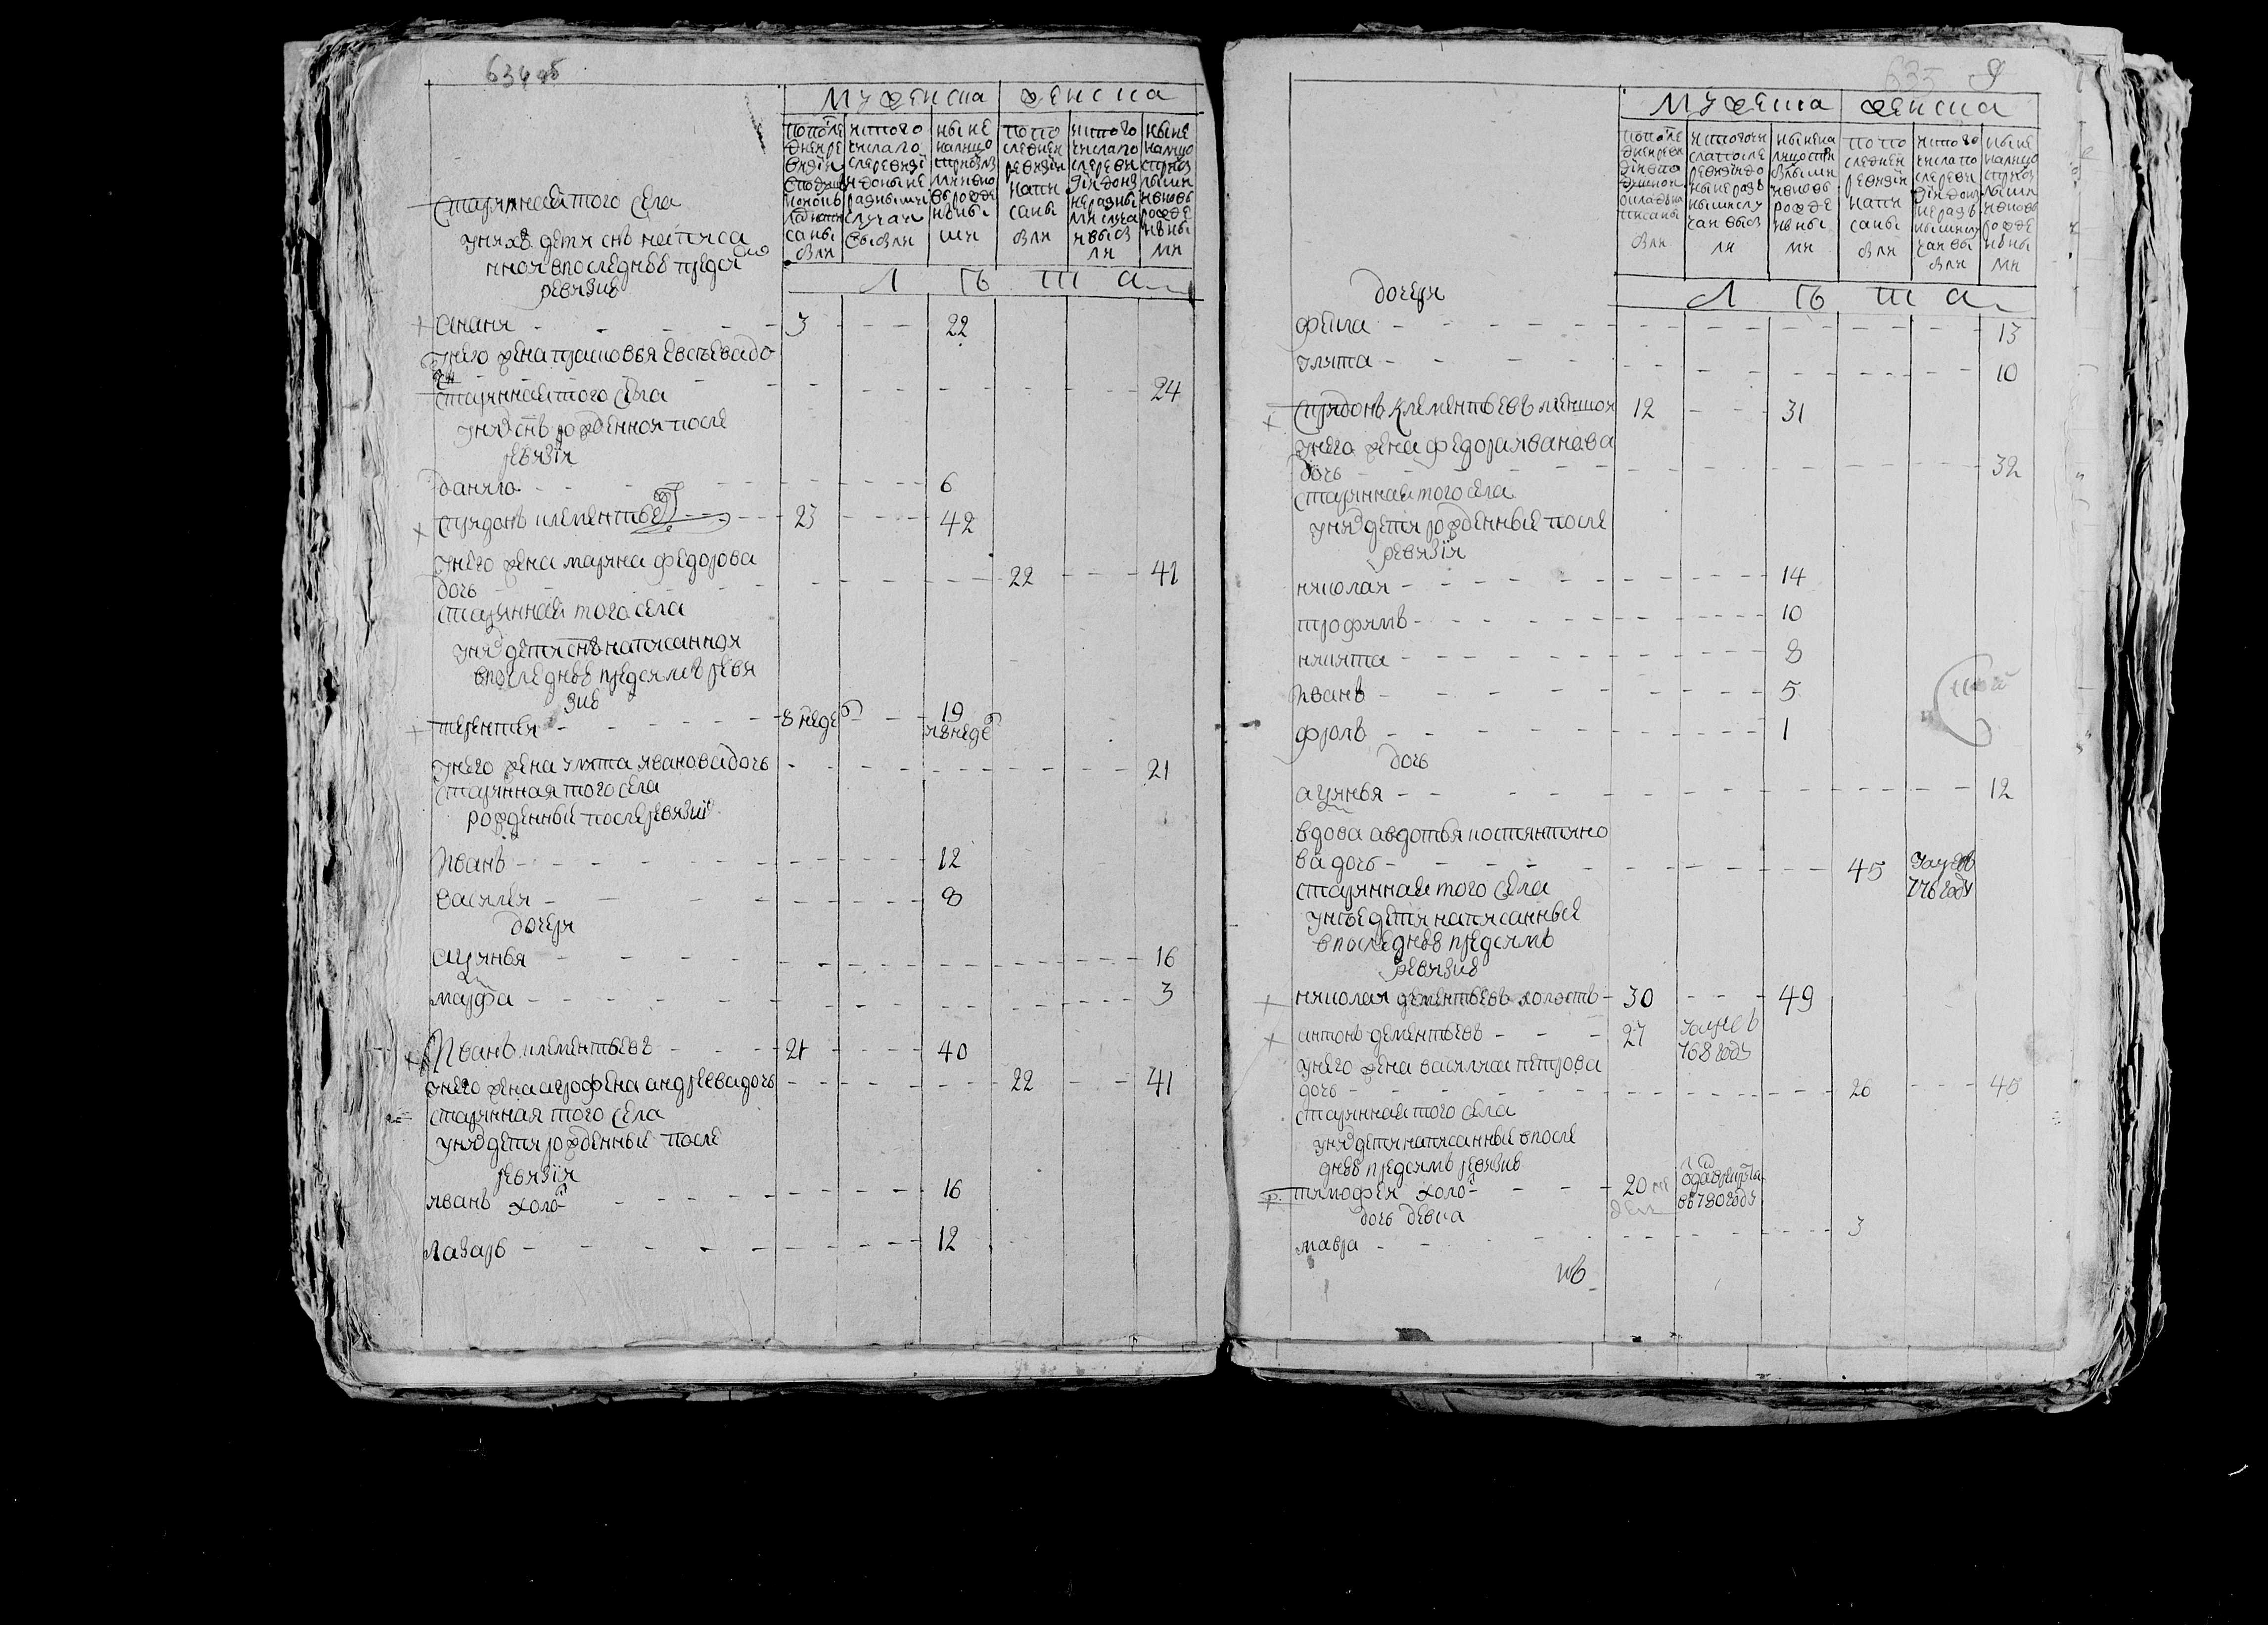 634 об
мужеска женска
по после
дней ре
визии
в подушной
оклад напи
саны
были
ис того
числа по
сле ревизи
и до ныне
разными
случаи
выбыли
ныне
на лицо
с прибыл
ми и вно
вь рожде
нны
ми
по по
следней
ревизии
напи
саны
были
ис того
числа по
сле реви
зии до ны
не разны
ми случа
и выбы
ли
ныне
на лицо
с прибы
лыми
и вновь
рожде
нны
ми
лѣта
старинная того села
у них дети снъ написа
нной в последнеѣ пред сим
ревизиѣ
ананья - - - 3 - - 22
у него жена прасковья евсеева до
чь
старинная того села - - - 24
у них снъ рожденной после
ревизiи
данило - - - 6
спридонъ клементьевъ - - - 23 - - - 42
у него жена марина федорова
дочь - - - 22 - - - 41
старинная того села
у них дети снъ написанной
в последнеѣ пред симъ реви
зиѣ
терентей - - - 8 недель - - 19
и 8 недель
у него жена улита иванова дочь - - - 21
старинная того села
рожденные после ревизиi
Иванъ - - - 12
василей - - - 8
дочери
акулинья - - - 16
марфа - - - 3
Иванъ клементьевъ - - - 21 - - - 40
у него жена агрофена андреева дочь - - - 22 - - 41
старинная того села
у них дети рожденные после
ревизiи
иванъ холо - - - 16
лазарь - - - 12
635 9
мужеска женска
по после
дней реви
зии в по
душной
оклад на
писаны
были
ис того чи
сла после
ревизии до
ныне разъ
ными слу
чаи выбы
ли
ныне на
лицо с при
былыми
и вновь
рожде
нны
ми
по по
следней
ревизии
напи
саны
были
ис того
числа по
сле реви
зии до ны
не разъ
ными слу
чаи вы
были
ныне
на лицо
с прибы
лыми
и вновь
рожде
нны
ми
лѣта
дочери
фекла - - - 13
улита - - - 10
спридонъ клементьевъ меншой 12 - - 31
у него жена федора иванова
дочь - - - 32
старинная того села
у них дети рожденные после
ревизiи
николай - - - 14
трофимъ - - - 10
никита - - - 8
Иванъ - - - 5
фролъ - - - 1
дочь
акулинья - - - 12
вдова авдотья костянтино
ва дочь - - - 45 умре въ
776 году
старинная того села
у нее дети написанные
в последнеѣ пред симъ
ревизиѣ
николай дементьевъ холостъ - 30 - - - 49
антонъ дементьевъ - - - 27 умре въ
768 году
у него жена василиса петрова
дочь - - - 26 - - - 45
старинная того села
у них дети написанные в после
днеѣ пред симъ ревизиѣ
тимофей холо - - - 20 не
дель
отдан в рекруты
въ 780 году
дочь девка
мавра - - - 3